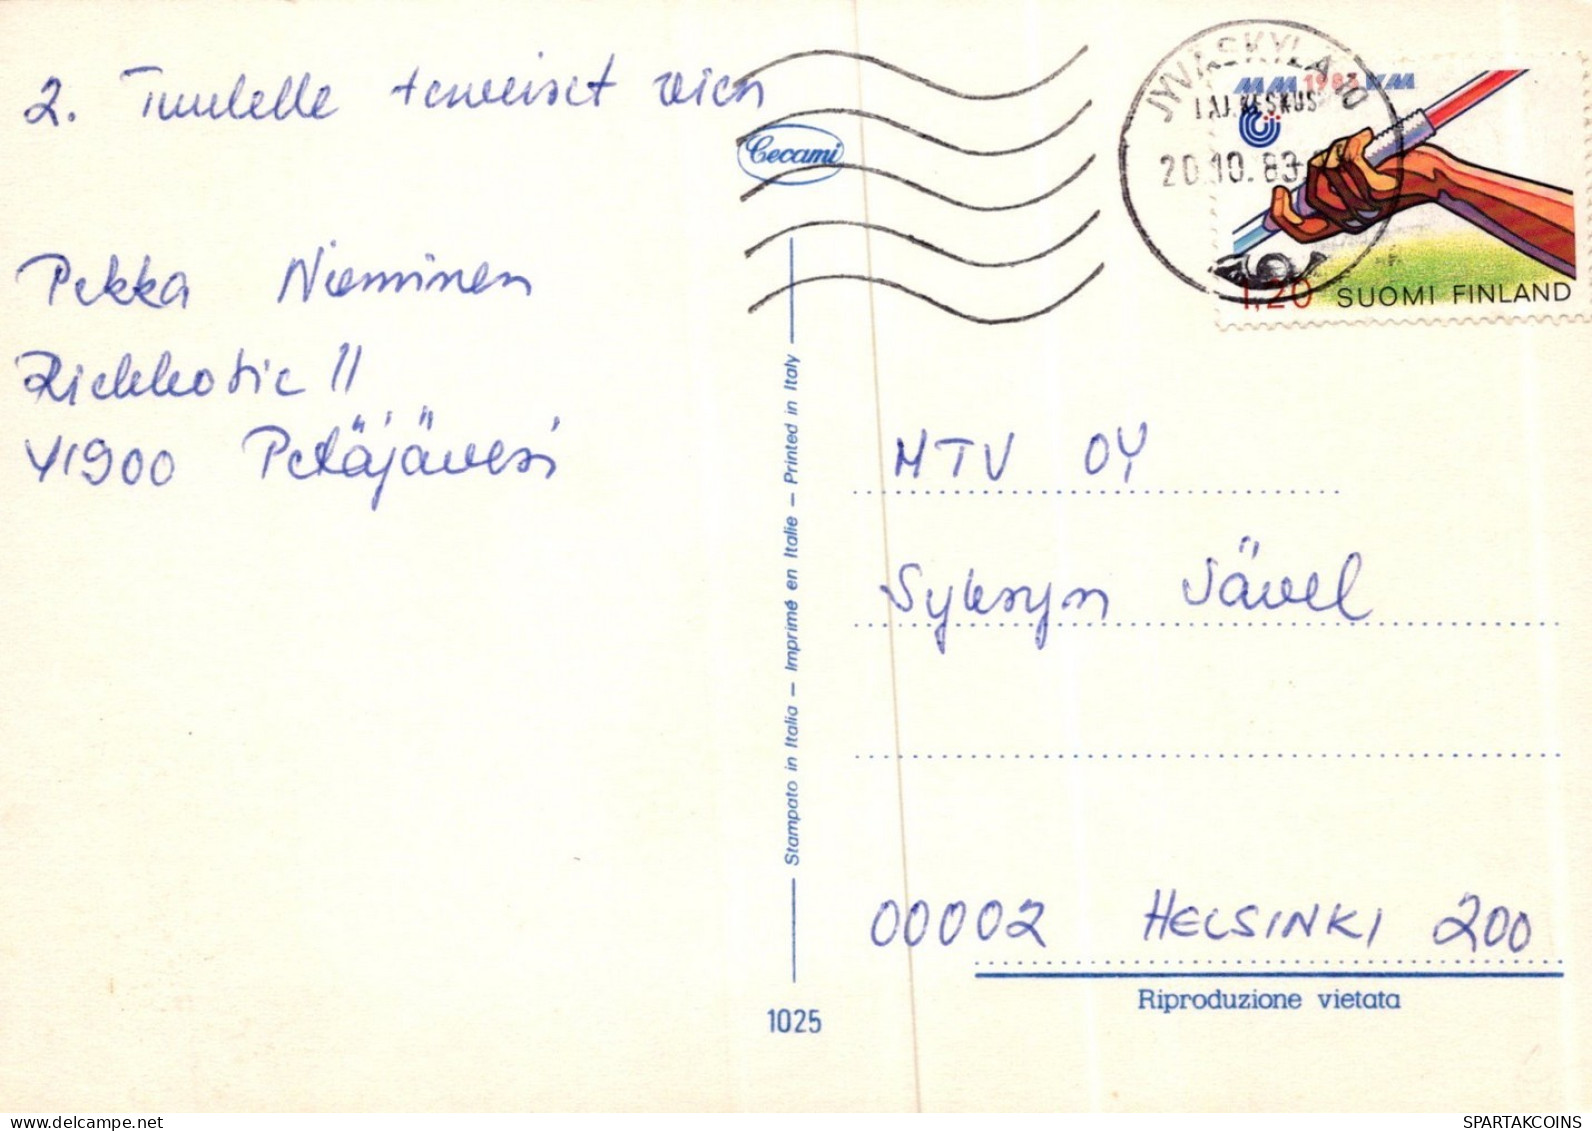 2. Tuulelle terveiset vien
Pekka Nieminen
Riekkotie 11
41900 Petäjävesi
Cecami
Stampato in Italia — Imprimé en Italie — Printed in Italy
1025
JYVÄSKYLÄ 10
LAJ.KESKUS
20.10.83
MM 1983 VM
1,20 SUOMI FINLAND
MTV OY
Syksyn Sävel
00002 HELSINKI 200
Riprodu​zione vietata
delcampe.net
SPARTAKCOINS